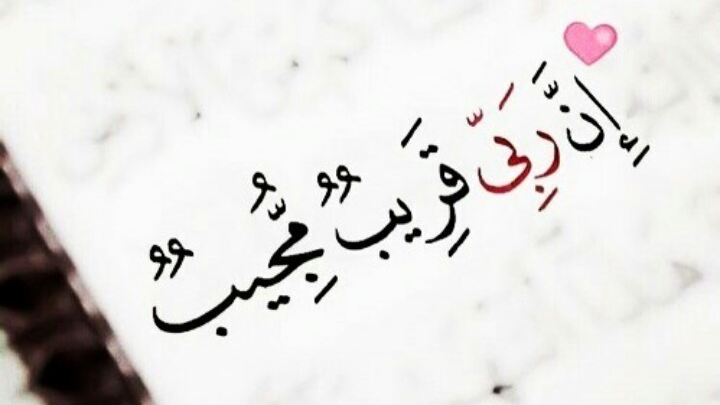 إِنَّ رَبِّى قَرِيبٌ مُّجِيبٌ